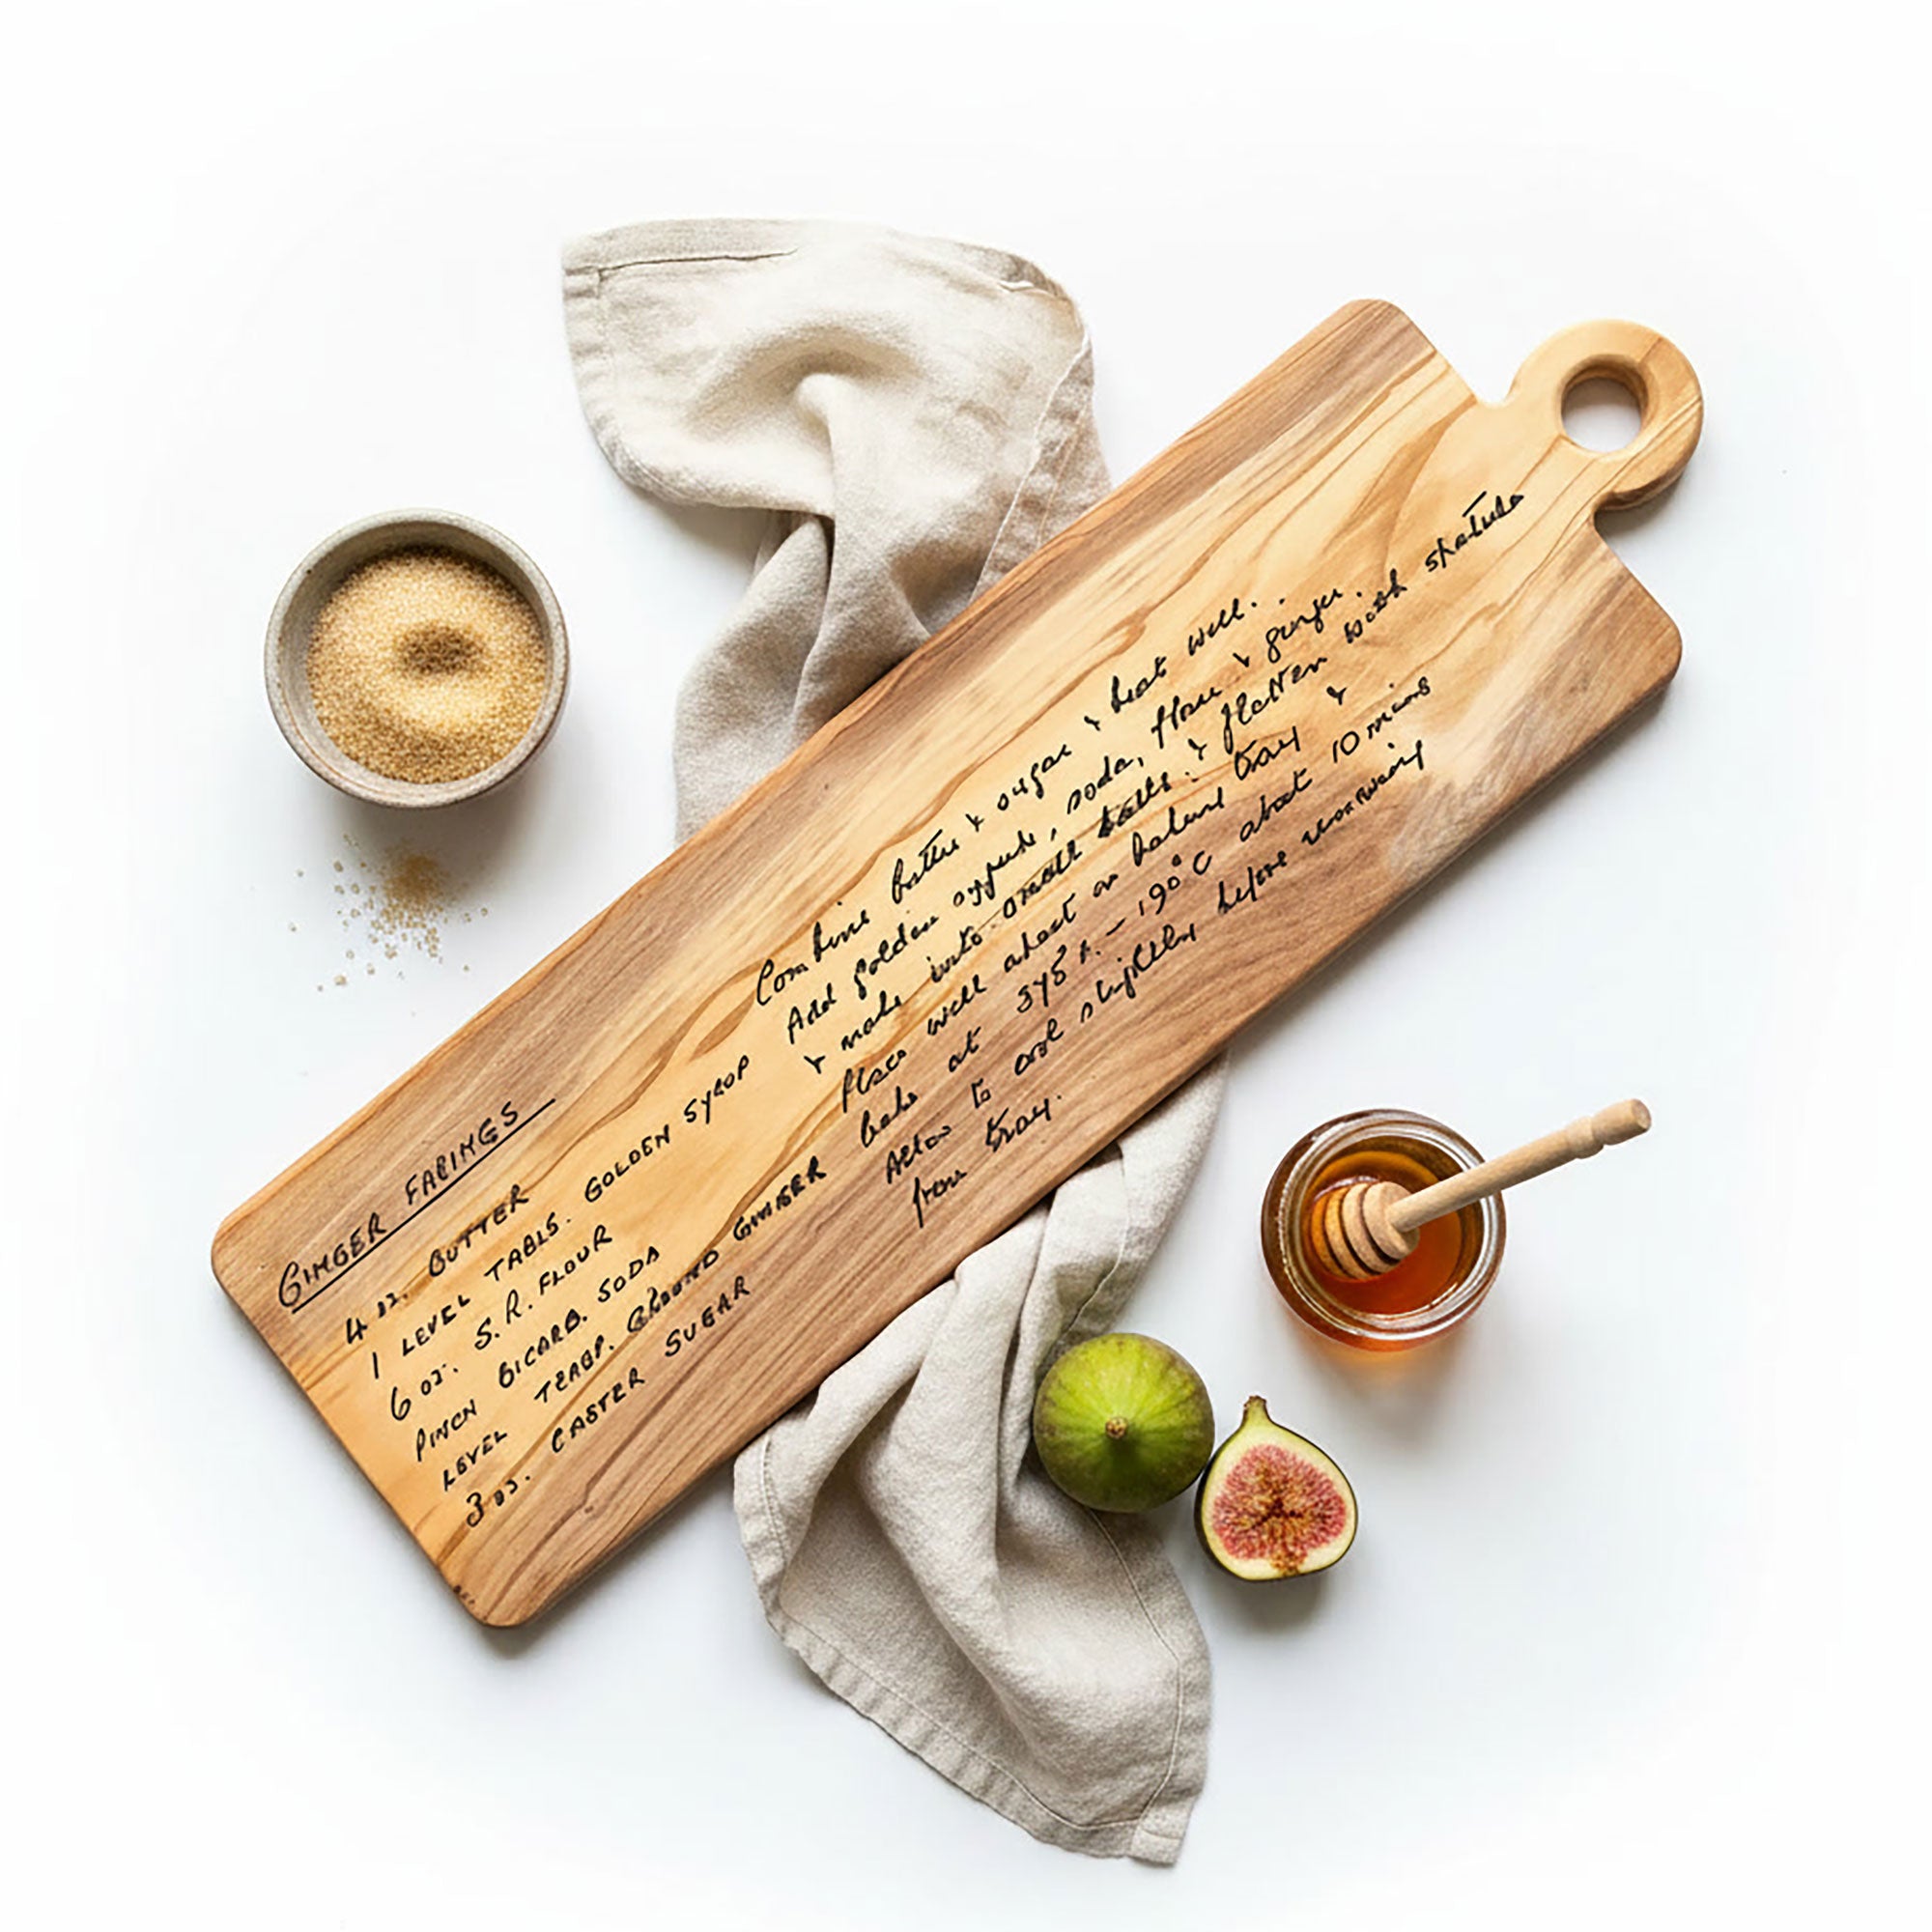 GINGER FARINGS
4 oz. BUTTER
1 LEVEL TABLS. GOLDEN SYROP
6 oz. S.R. FLOUR
PINCH BICARB. SODA
LEVEL TEASP. GROUND GINGER
3 oz. CASTER SUGAR
Combine butter & sugar & beat well.
Add golden syrup, soda, flour & ginger.
& make into small balls. & flatten with spatula
Place well apart on baking tray &
bake at 375 F. - 190°C about 10 mins
Allow to cool slightly before removing
from tray.